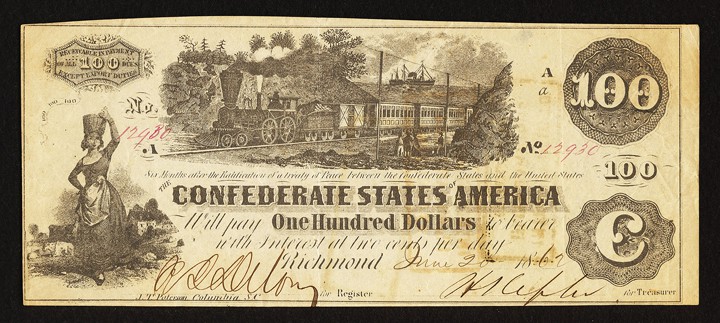 RECEIVABLE IN PAYMENT
OF ALL 100 DUES
EXCEPT EXPORT DUTIES
A
a
100
No.
12980
A
No 12930
100
Six Months after the Ratification of a treaty of Peace between the Confederate States and the United States
THE CONFEDERATE STATES OF AMERICA
Will pay One Hundred Dollars to bearer
with Interest at two cents per day
Richmond June 1862
C
for Register
for Treasurer
J.T. Paterson, Columbia, S.C.